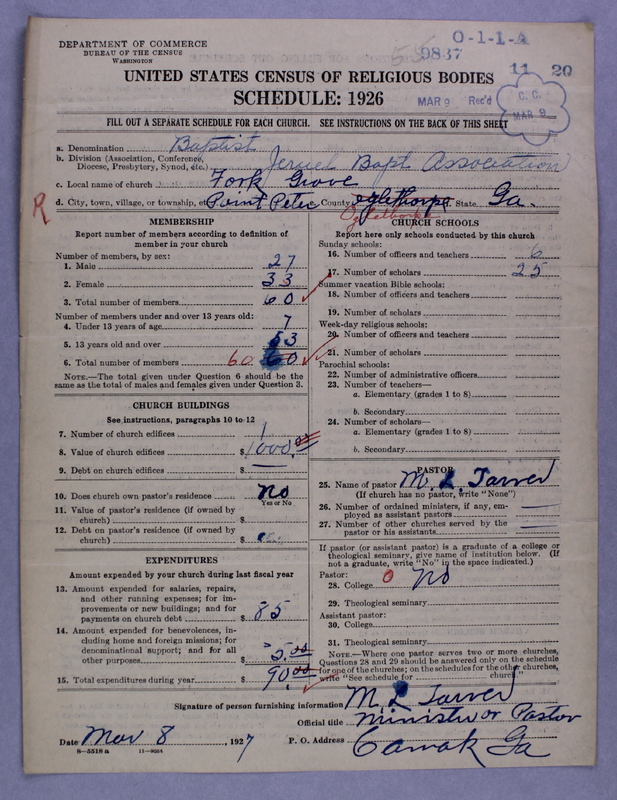 O-1-1-A
DEPARTMENT OF COMMERCE
BUREAU OF THE CENSUS
WASHINGTON
9837
11 20
UNITED STATES CENSUS OF RELIGIOUS BODIES
SCHEDULE: 1926
MAR 9 Rec'd
C. C.
MAR 9
FILL OUT A SEPARATE SCHEDULE FOR EACH CHURCH. SEE INSTRUCTIONS ON THE BACK OF THIS SHEET
a. Denomination Baptist
b. Division (Association, Conference, Diocese, Presbytery, Synod, etc.) Jeruel Bapt Association
c. Local name of church Fork Grove
d. City, town, village, or township, etc. Point Peter County Oglethorpe State Ga.
R
MEMBERSHIP
Report number of members according to definition of
member in your church
Number of members, by sex:
1. Male 27
2. Female 33
3. Total number of members 60
Number of members under and over 13 years old:
4. Under 13 years of age 7
5. 13 years old and over 53
6. Total number of members 60 60
NOTE.—The total given under Question 6 should be the
same as the total of males and females given under Question 3.
CHURCH BUILDINGS
See instructions, paragraphs 10 to 12
7. Number of church edifices 1
8. Value of church edifices $1000.00
9. Debt on church edifices $
10. Does church own pastor's residence No
Yes or No
11. Value of pastor's residence (if owned by
church) $
12. Debt on pastor's residence (if owned by
church) $
EXPENDITURES
Amount expended by your church during last fiscal year
13. Amount expended for salaries, repairs,
and other running expenses; for im-
provements or new buildings; and for
payments on church debt $85
14. Amount expended for benevolences, in-
cluding home and foreign missions; for
denominational support; and for all
other purposes 5.00
15. Total expenditures during year $90.00
CHURCH SCHOOLS
Report here only schools conducted by this church
Sunday schools:
16. Number of officers and teachers 6
17. Number of scholars 25
Summer vacation Bible schools:
18. Number of officers and teachers
19. Number of scholars
Week-day religious schools:
20. Number of officers and teachers
21. Number of scholars
Parochial schools:
22. Number of administrative officers
23. Number of teachers—
a. Elementary (grades 1 to 8)
b. Secondary
24. Number of scholars—
a. Elementary (grades 1 to 8)
b. Secondary
PASTOR
25. Name of pastor M. L. Tarver
(If church has no pastor, write "None")
26. Number of ordained ministers, if any, em-
ployed as assistant pastors
27. Number of other churches served by the
pastor or his assistants
If pastor (or assistant pastor) is a graduate of a college or
theological seminary, give name of institution below. (If
not a graduate, write "No" in the space indicated.)
Pastor:
28. College 0 No
29. Theological seminary
Assistant pastor:
30. College
31. Theological seminary
NOTE.—Where one pastor serves two or more churches,
Questions 28 and 29 should be answered only on the schedule
for one of the churches; on the schedules for the other churches,
write "See schedule for church."
Signature of person furnishing information M L Tarver
Official title Minister or Pastor
Date Mar 8, 1927 P. O. Address Camak Ga
8-5518 a 11-9054